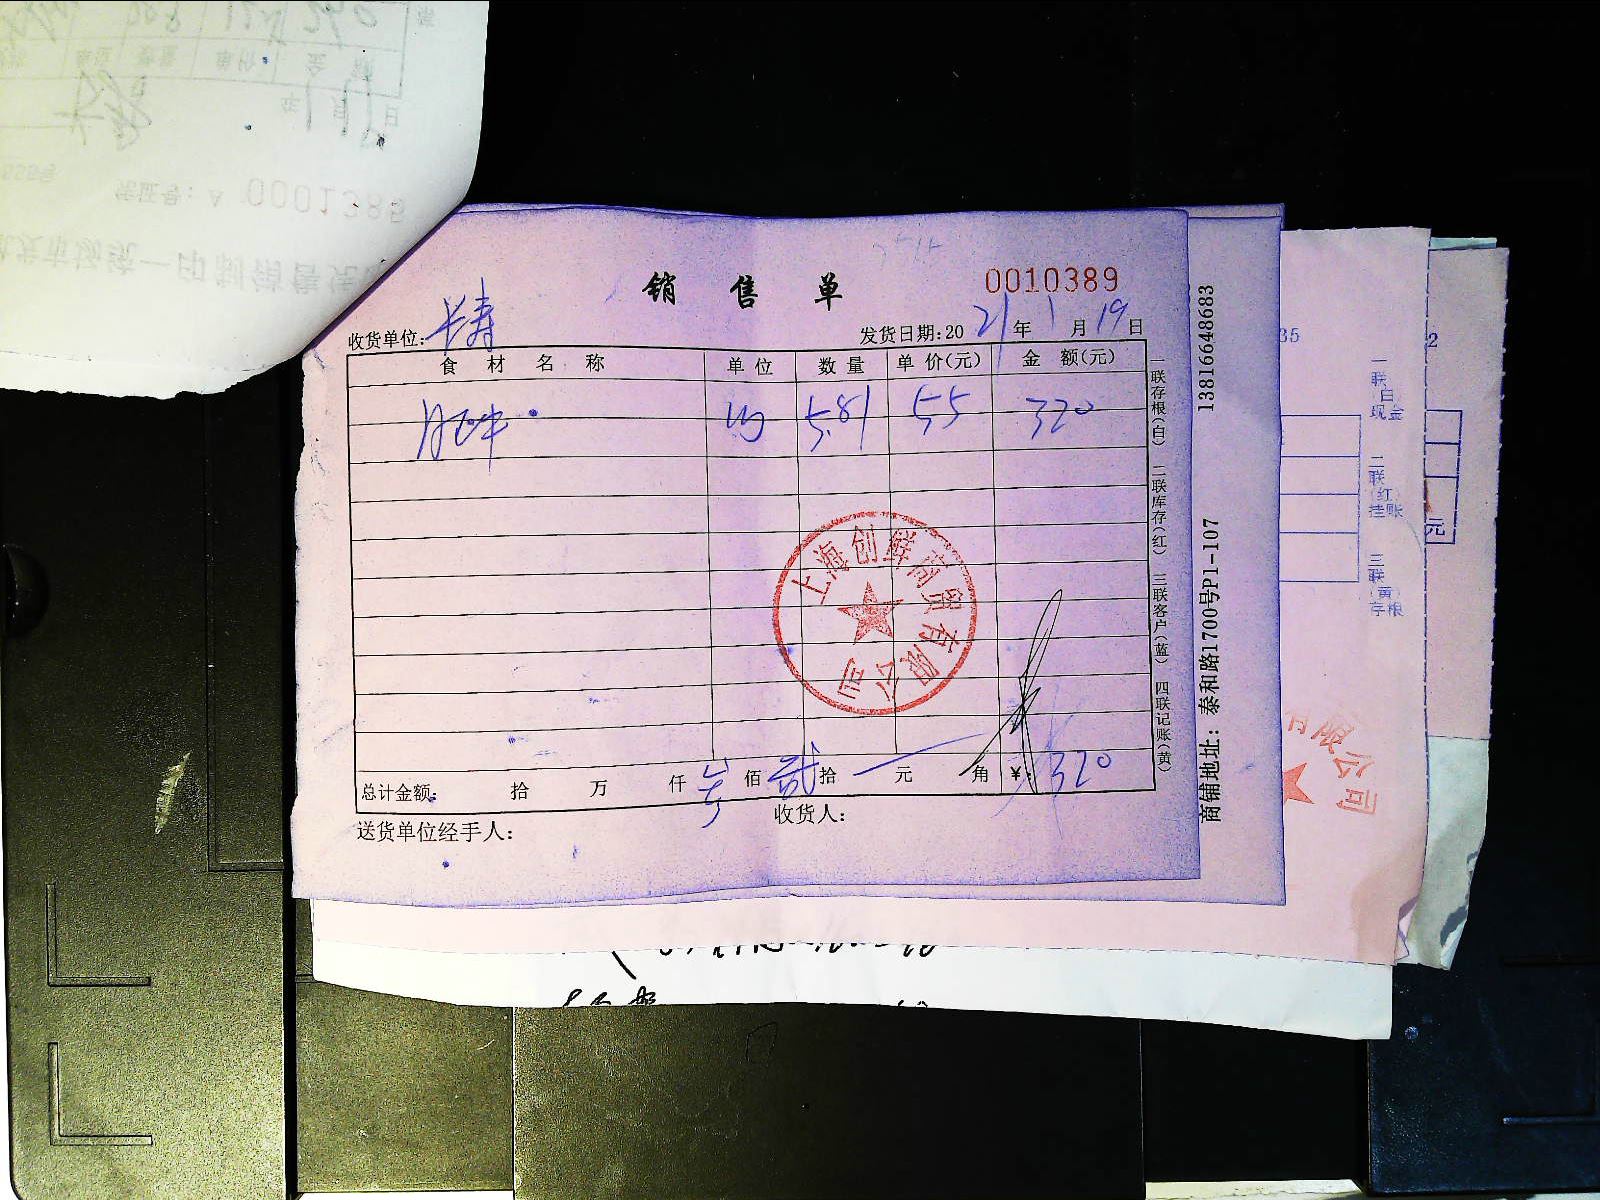 销售单
0010389
收货单位: 长寿
发货日期: 2021年1月19日
食材名称 单位 数量 单价(元) 金额(元)
肥牛 5.81 55 320
总计金额: 拾 万 仟 叁佰 贰拾 元 角 ¥: 320
送货单位经手人:
收货人:
一联存根(白) 二联库存(红) 三联客户(蓝) 四联记账(黄)
上海创鲜商贸有限公司
商铺地址: 泰和路1700号P1-107
13816648683
35
一联(白)现金
二联(红)挂账
三联(黄)存根
有限公司
2
元
凭证号: A 0001385
年1月
单位 数量 单价 金额